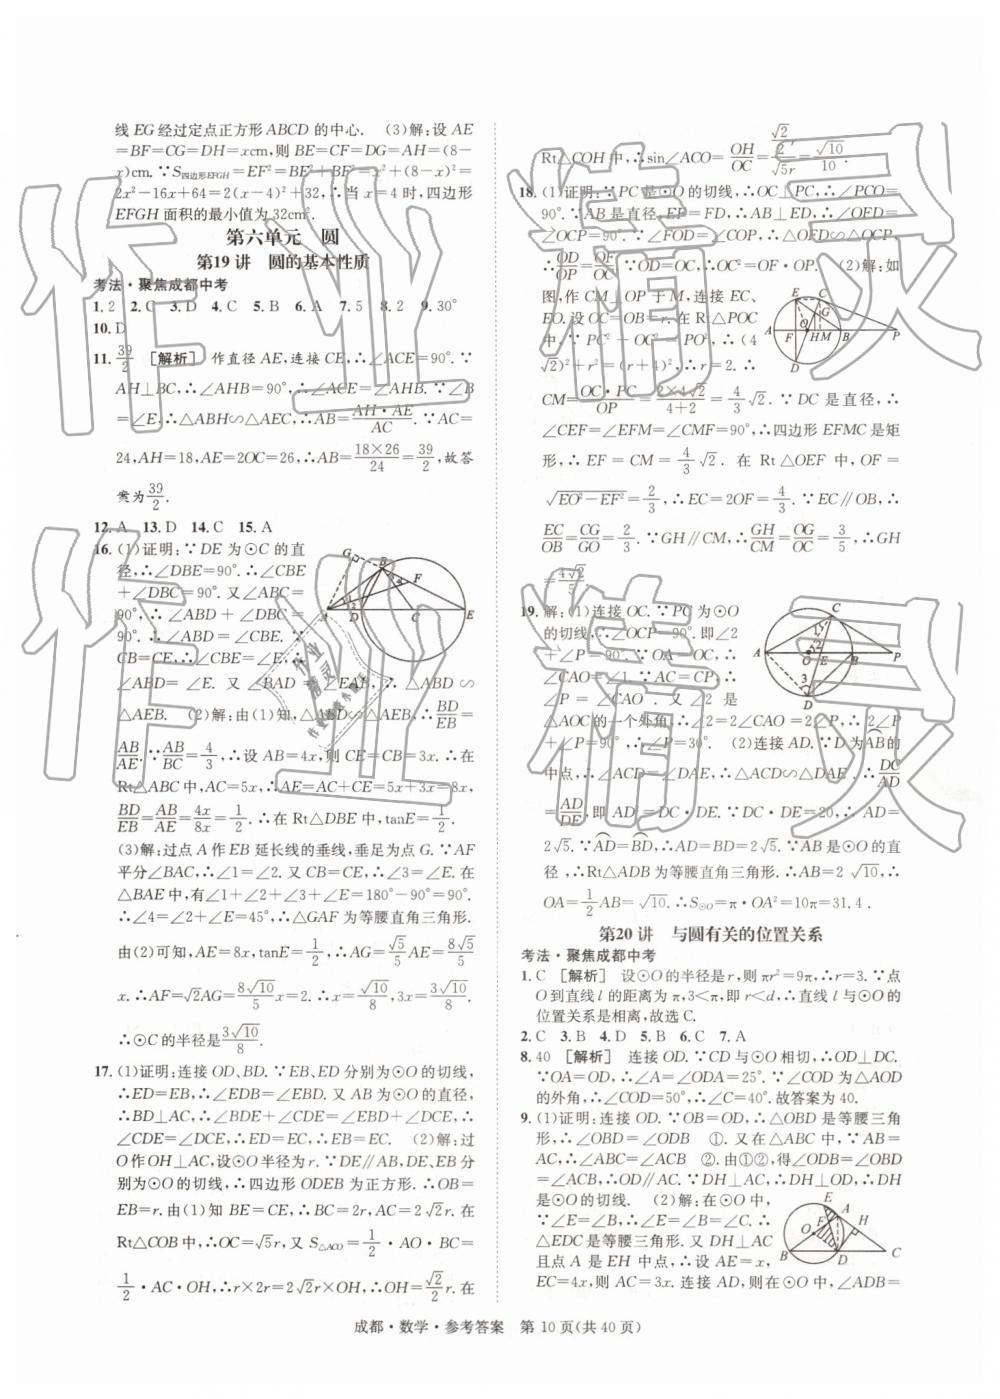 线 EG 经过定点正方形 ABCD 的中心. (3)解:设 AE
=BF=CG=DH=xcm,则 BE=CF=DG=AH=(8-
x)cm. ∵S四边形EFGH=EF²=BE²+BF²=x²+(8-x)²=
2x²-16x+64=2(x-4)²+32,∴当 x=4 时,四边形
EFGH 面积的最小值为 32cm².
第六单元 圆
第19讲 圆的基本性质
考法·聚焦成都中考
1. 2 2. C 3. D 4. C 5. B 6. A 7. 5 8. 2 9. 30°
10. D
11. 39/2 [解析] 作直径 AE,连接 CE,∴∠ACE=90°. ∵
AH⊥BC,∴∠AHB=90°,∴∠ACE=∠AHB. ∵∠B
=∠E,∴△ABH∽△AEC,∴AB=AH·AE/AC. ∵AC=
24,AH=18,AE=2OC=26,∴AB=18×26/24=39/2,故答
案为39/2.
12. A 13. D 14. C 15. A
16. (1)证明:∵DE 为⊙C 的直
径,∴∠DBE=90°. ∴∠CBE
+∠DBC=90°. 又∠ABC=
90°,∴∠ABD+∠DBC=
90°. ∴∠ABD=∠CBE. ∵
CB=CE,∴∠CBE=∠E,∴
∠ABD=∠E. 又∠BAD=∠EAB,∴△ABD∽
△AEB. (2)解:由(1)知,△ABD∽△AEB,∴BD/EB=
AB/AE. ∵AB/BC=4/3,∴设 AB=4x,则 CE=CB=3x. ∴在
Rt△ABC 中,AC=5x,∴AE=AC+CE=5x+3x=8x,
BD/EB=AB/AE=4x/8x=1/2. ∴在 Rt△DBE 中,tanE=1/2.
(3)解:过点 A 作 EB 延长线的垂线,垂足为点 G. ∵AF
平分∠BAC,∴∠1=∠2. 又 CB=CE,∴∠3=∠E. 在
△BAE 中,有∠1+∠2+∠3+∠E=180°-90°=90°.
∴∠4=∠2+∠E=45°,∴△GAF 为等腰直角三角形.
由(2)可知,AE=8x,tanE=1/2,∴AG=√5/5 AE=8√5/5
x. ∴AF=√2AG=8√10/5 x=2. ∴x=√10/8,3x=3√10/8.
∴⊙C 的半径是3√10/8.
17. (1)证明:连接 OD、BD. ∵EB、ED 分别为⊙O 的切线,
∴ED=EB,∴∠EDB=∠EBD. 又 AB 为⊙O 的直径,
∴BD⊥AC,∴∠BDE+∠CDE=∠EBD+∠DCE,∴
∠CDE=∠DCE,∴ED=EC,∴EB=EC. (2)解:过
O 作 OH⊥AC,设⊙O 半径为 r. ∵DE∥AB,DE、EB 分
别为⊙O 的切线,∴四边形 ODEB 为正方形. ∴OB=
EB=r. 由(1)知 BE=CE,∴BC=2r,AC=2√2r. 在
Rt△COB 中,∴OC=√5r,又 S△ACO=1/2·AO·BC=
1/2·AC·OH,∴r×2r=2√2r×OH,∴OH=√2/2 r. 在
Rt△COH 中,∴sin∠ACO=OH/OC=(√2/2 r)/(√5r)=√10/10.
18. (1)证明:∵PC 是⊙O 的切线,∴OC⊥PC,∴∠PCO=
90°. ∵AB 是直径,EF=FD,∴AB⊥ED,∴∠OFD=
∠OCP=90°. ∵∠FOD=∠COP,∴△OFD∽△OCP,
∴OD/OP=OF/OC. ∵OD=OC,∴OC²=OF·OP. (2)解:如
图,作 CM⊥OP 于 M,连接 EC、
EO. 设 OC=OB=r. 在 Rt△POC
中,∵PC²+OC²=PO²,∴(4
√2)²+r²=(r+4)²,∴r=2. ∴
CM=OC·PC/OP=2×4√2/(4+2)=4/3 √2. ∵DC 是直径,∴
∠CEF=∠EFM=∠CMF=90°,∴四边形 EFMC 是矩
形,∴EF=CM=4/3 √2. 在 Rt△OEF 中,OF=
√(EO²-EF²)=2/3,∴EC=2OF=4/3. ∵EC∥OB,∴
EC/OB=CG/GO=2/3. ∵GH∥CM,∴GH/CM=OG/OC=3/5,∴GH
=4√2/5.
19. 解:(1)连接 OC. ∵PC 为⊙O
的切线,∴∠OCP=90°. 即∠2
+∠P=90°. ∵OA=OC,∴
∠CAO=∠1. ∵AC=CP,∴
∠P=∠CAO. 又∠2 是
△AOC 的一个外角,∴∠2=2∠CAO=2∠P,∴2∠P
+∠P=90°,∴∠P=30°. (2)连接 AD. ∵D 为AB的
中点,∴∠ACD=∠DAE,∴△ACD∽△DAE,∴DC/AD
=AD/DE,即 AD²=DC·DE. ∵DC·DE=20,∴AD=
2√5. ∵AD=BD,∴AD=BD=2√5. ∵AB 是⊙O 的直
径,∴Rt△ADB 为等腰直角三角形. ∴AB=2√10,∴
OA=1/2 AB=√10. ∴S⊙O=π·OA²=10π=31.4.
第20讲 与圆有关的位置关系
考法·聚焦成都中考
1. C [解析] 设⊙O 的半径是 r,则 πr²=9π,∴r=3. ∵点
O 到直线 l 的距离为 π,3<π,即 r<d,∴直线 l 与⊙O 的
位置关系是相离,故选 C.
2. C 3. B 4. D 5. B 6. C 7. A
8. 40 [解析] 连接 OD. ∵CD 与⊙O 相切,∴OD⊥DC.
∵OA=OD,∴∠A=∠ODA=25°. ∵∠COD 为△AOD
的外角,∴∠COD=50°,∴∠C=40°. 故答案为 40.
9. (1)证明:连接 OD. ∵OB=OD,∴△OBD 是等腰三角
形,∴∠OBD=∠ODB ①. 又在△ABC 中,∵AB=
AC,∴∠ABC=∠ACB ②. 由①②,得∠ODB=∠OBD
=∠ACB,∴OD∥AC. ∵DH⊥AC,∴DH⊥OD,∴DH
是⊙O 的切线. (2)解:在⊙O 中,
∵∠E=∠B,∴∠E=∠B=∠C. ∴
△EDC 是等腰三角形. 又 DH⊥AC
且点 A 是 EH 中点,∴设 AE=x,
EC=4x,则 AC=3x. 连接 AD,则在⊙O 中,∠ADB=
成都·数学·参考答案 第 10 页(共 40 页)